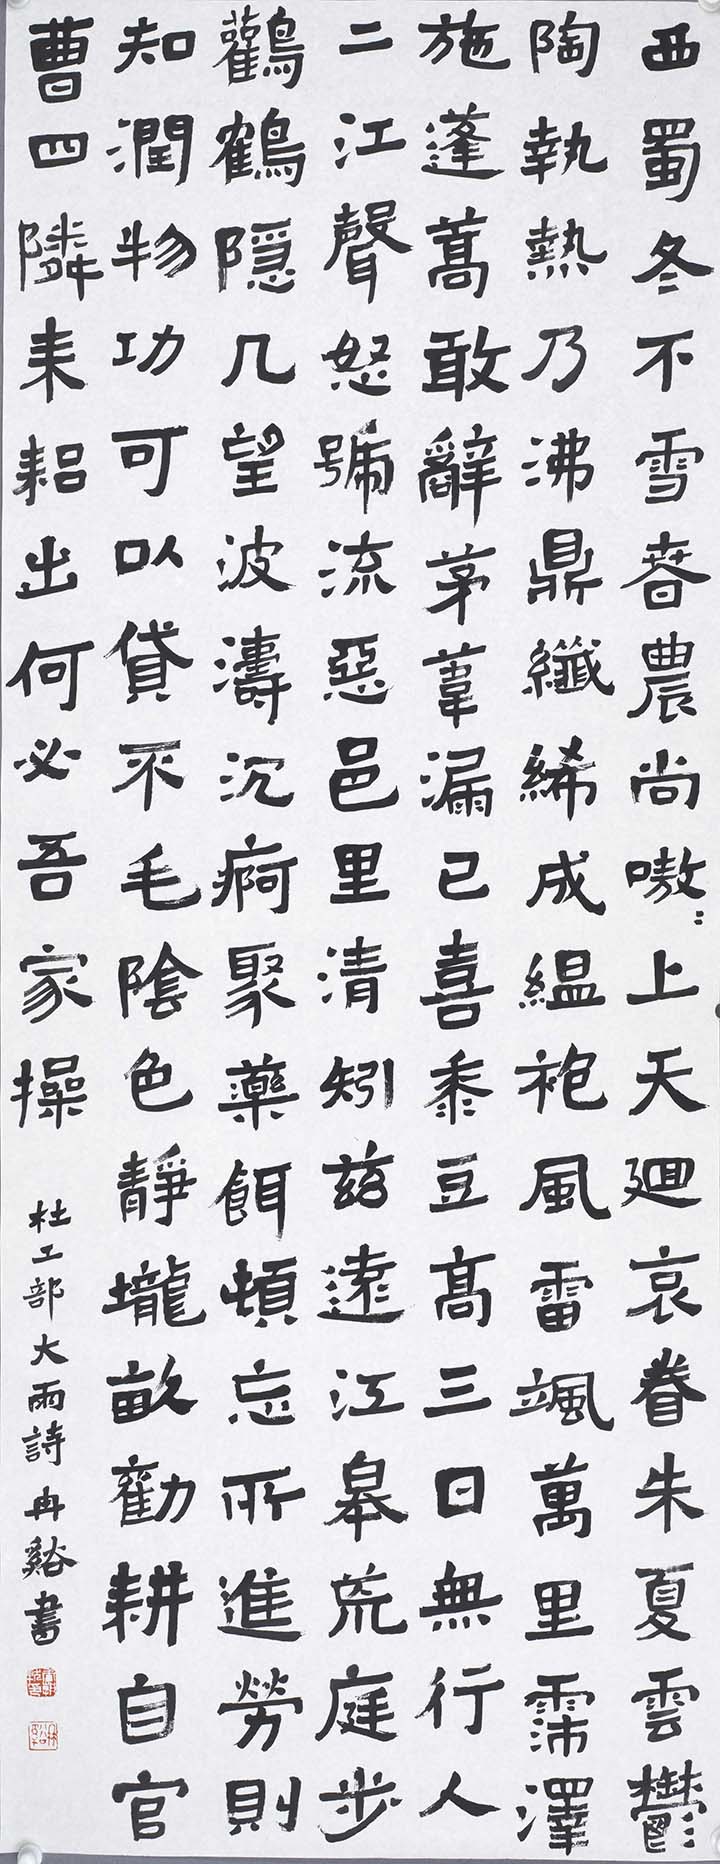 西蜀冬不雪春農尚嗷：上天迴哀眷朱夏雲鬱
陶執熱乃沸鼎纖絺成縕袍風雷颯萬里霈澤
施蓬蒿敢辭茅葦漏已喜黍豆高三日無行人
二江聲怒號流惡邑里清矧兹遠江皋荒庭步
鸛鶴隱几望波濤沉痾聚藥餌頓忘所進勞則
知潤物功可以貸不毛陰色靜壠畝勸耕自官
曹四隣耒耜出何必吾家操
杜工部大雨詩 冉谿書